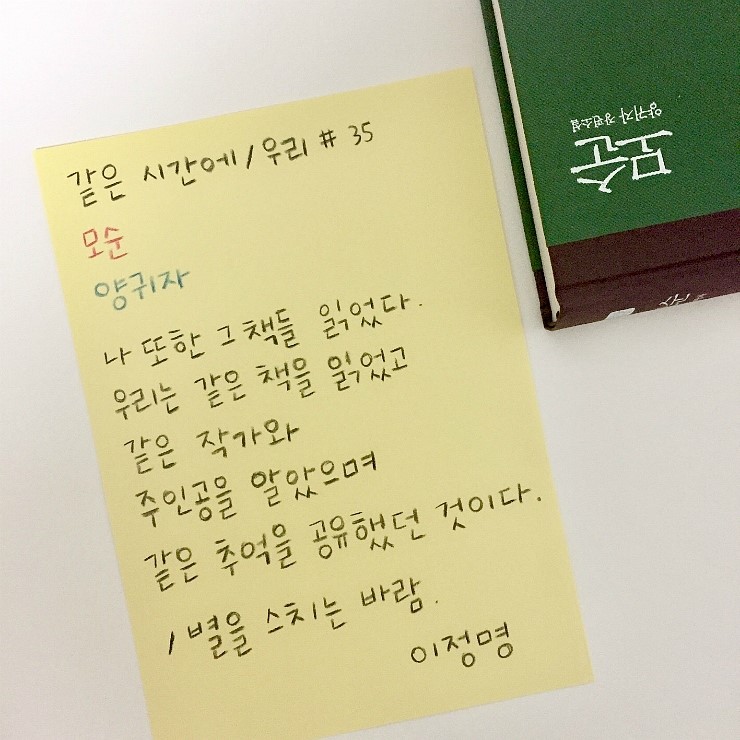 같은 시간에/우리 # 35
모순
양귀자
나 또한 그 책들을 읽었다.
우리는 같은 책을 읽었고
같은 작가와
주인공을 알았으며
같은 추억을 공유했던 것이다.
/별을 스치는 바람.
이정명
모순
양귀자 장편소설